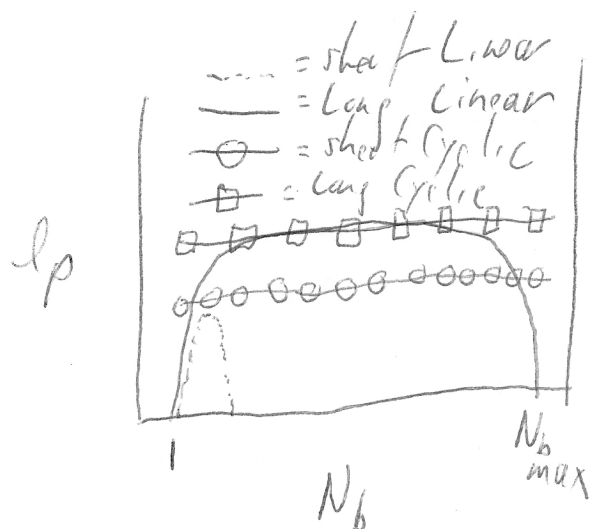 = short Linear
= Long Linear
= short Cyclic
= Long Cyclic
lp
1
Nb max
Nb